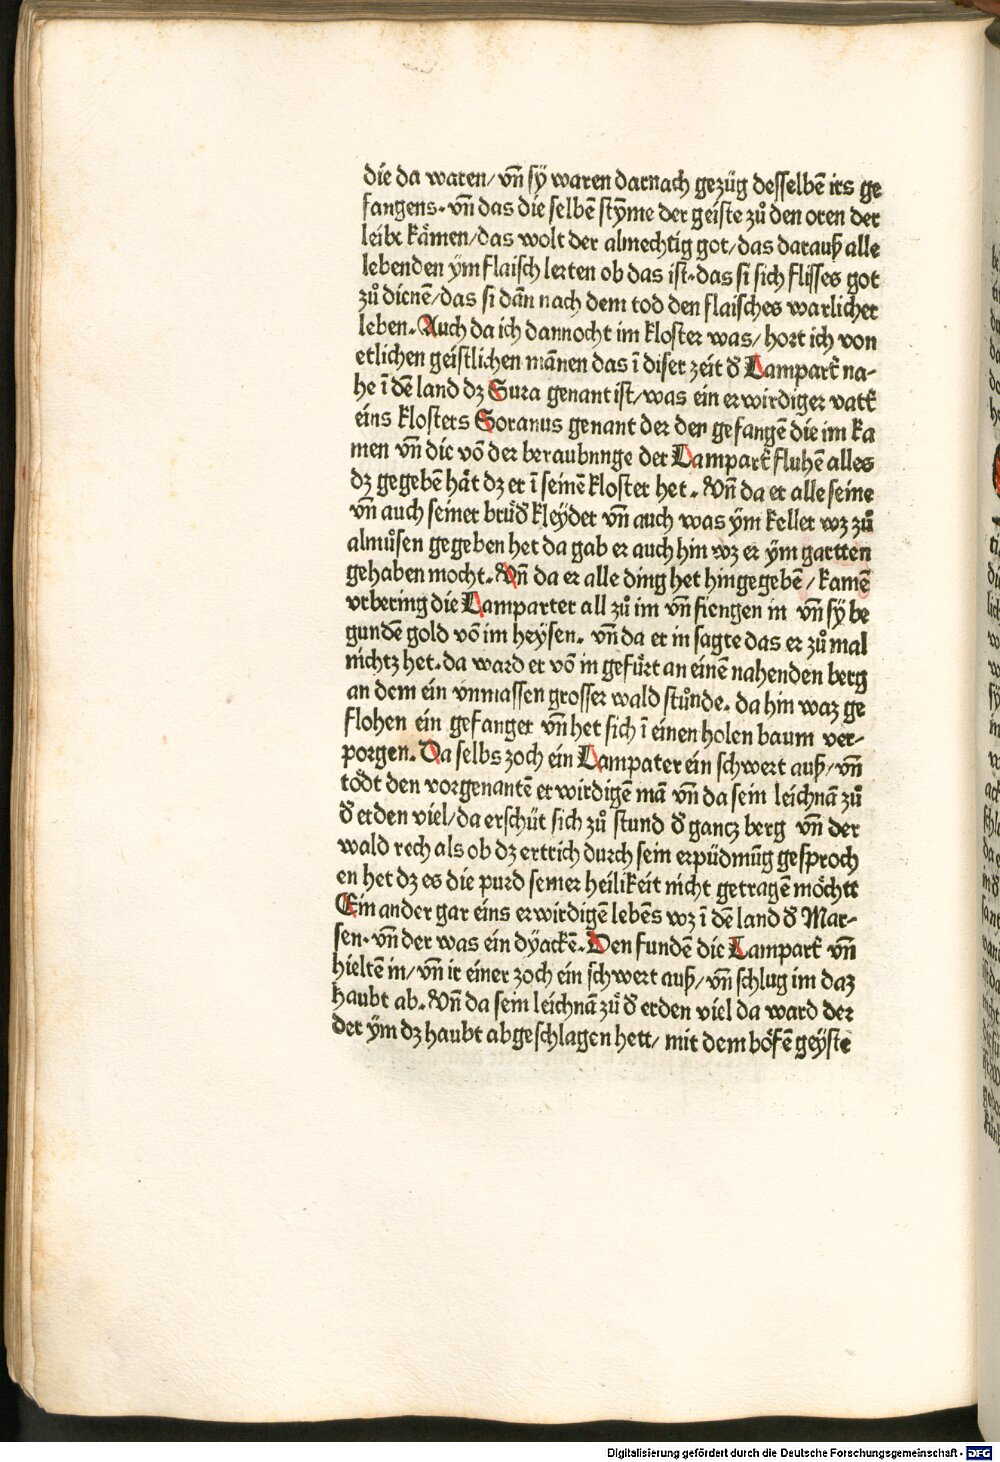 die da waren/ vñ sÿ waren darnach gezüg desselbẽ irs ge
fangens. vñ das die selbẽ stÿme der geiste zů den oren der
leibe kåmen/das wolt der almechtig got/das darauß alle
lebenden ÿm flaisch lerten ob das ist. das si sich flisses got
zů dienẽ/das si dãn nach dem tod den flaisches warlicher
leben. Auch da ich dannocht im kloster was/ hort ich von
etlichen geistlichen mãnen das ĩ diser zeit d̕ Lampart̕ na-
he ĩ dẽ land dz Sura genant ist/was ein erwirdiger vatt̕
eins klosters Soranus genant der den gefangẽ die im ka
men vñ die võ der beraubnnge der Lampart̕ fluhẽ alles
dz gegebẽ håt dz er ĩ seinẽ kloster het. Vñ da er alle seine
vñ auch seiner brůd̕ kleÿder vñ auch was ÿm keller wz zů
almůsen gegeben het da gab er auch hin wz er ÿm gartten
gehaben mocht. Vñ da er alle ding het hingegebẽ/ kamẽ
vrbering die Lamparter all zů im vñ fiengen in vñ sÿ be
gundẽ gold võ im heÿsen. vñ da er in sagte das er zů mal
nichtz het. da ward er võ in gefůrt an einẽ nahenden berg
an dem ein vnmassen grosser wald stůnde. da hin waz ge
flohen ein gefanger vñ het sich ĩ einen holen baum ver-
porgen. Da selbs zoch ein Lampater ein schwert auß/ vñ
tödt den vorgenantẽ erwirdigẽ mã vñ da sein leichnã zů
d̕ erden viel/da erschüt sich zů stund d̕ gancz berg vñ der
wald rech als ob dz ertrich durch sein erpüdmũg gesproch
en het dz es die purd seiner heilikeit nicht getragẽ möchtt
Ein ander gar eins erwirdigẽ lebẽs wz ĩ dẽ land d̕ Mar-
sen. vñ der was ein dÿackẽ. Den fundẽ die Lampart̕ vñ
hieltẽ in/ vñ ir einer zoch ein schwert auß/ vñ schlug im daz
haubt ab. Vñ da sein leichnã zů d̕ erden viel da ward der
der ÿm dz haubt abgeschlagen hett/ mit dem bösẽ geÿste
Digitalisierung gefördert durch die Deutsche Forschungsgemeinschaft - DFG